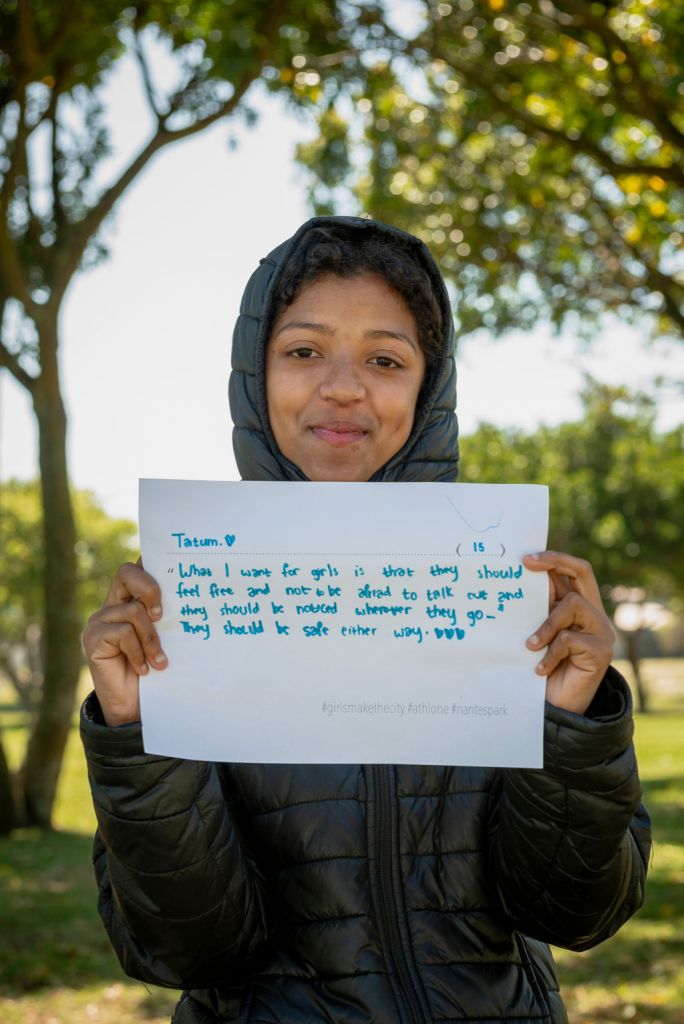 Tatum. ♥
( 15 )
"What I want for girls is that they should
feel free and not to be afriad to talk out and
they should be noticed wherever they go-"
They should be safe either way. ♥♥♥
#girlsmakethecity #athlone #nantespark